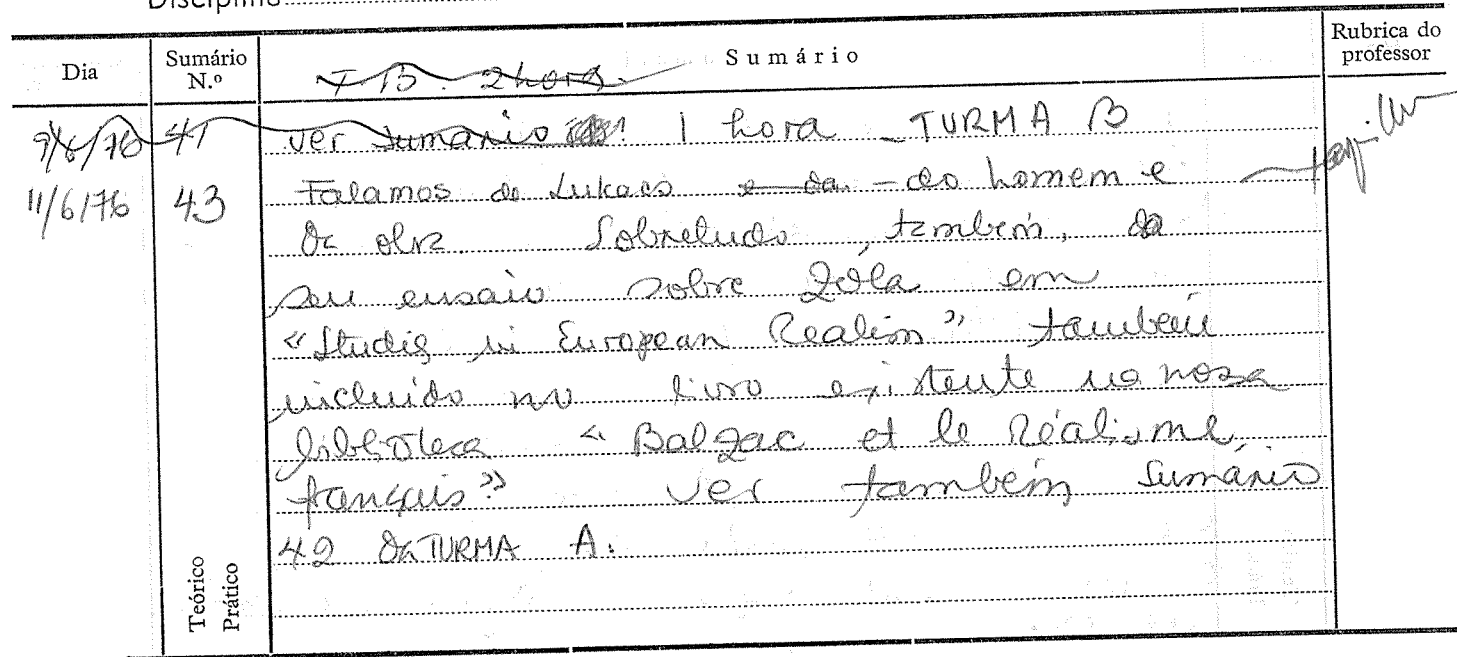 Disciplina
Dia
Sumário N.º
Sumário
Rubrica do professor
T B. 2 hora.
9/6/76 41 ver sumario 1 hora - TURMA B
11/6/76 43 Falamos do Lukacs e da - do homem e
da obra. Sobretudo, também, do
seu ensaio sobre Zola em
"Studies in European Realism" também
incluído no livro existente na nossa
biblioteca "Balzac et le Réalisme
français". Ver também Sumário
42 da TURMA A.
Teórico
Prático